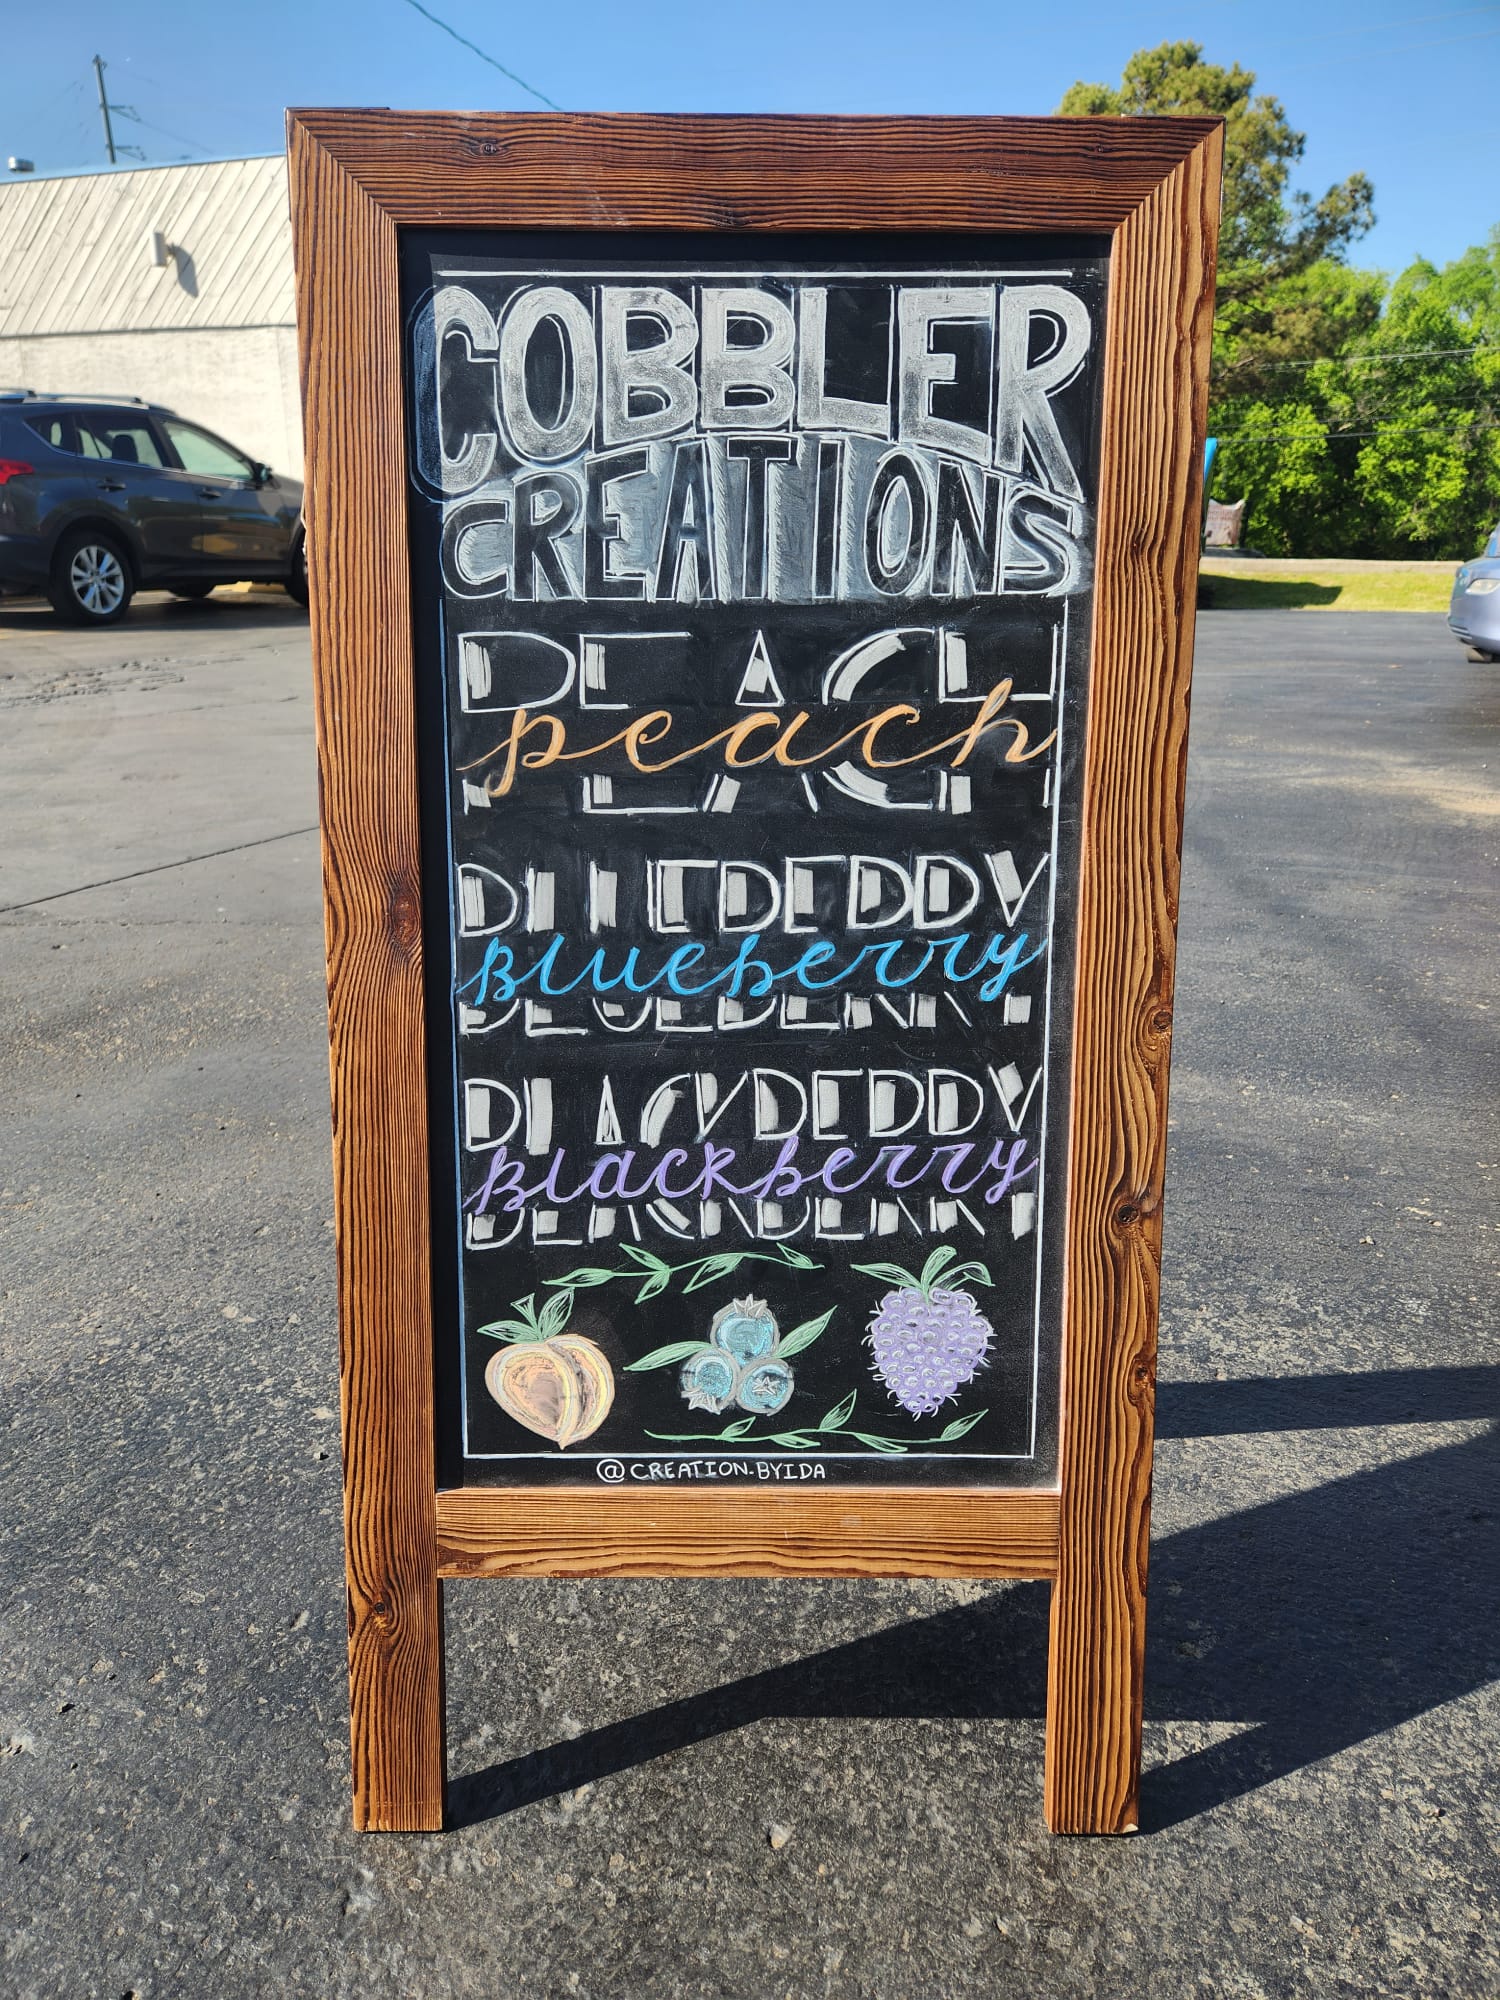 COBBLER
CREATIONS
PEACH
peach
BLUEBERRY
Blueberry
BLACKBERRY
Blackberry
@CREATION.BYIDA